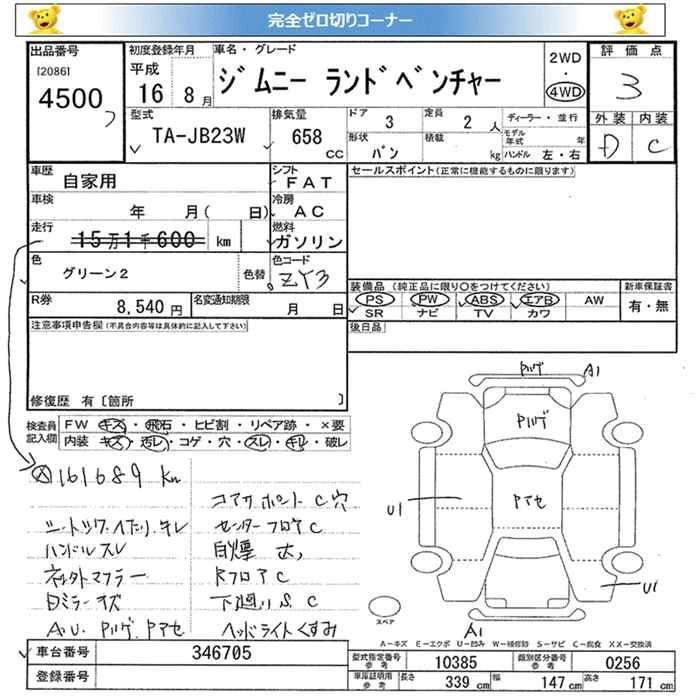 完全ゼロ切りコーナー
出品番号
[2086]
4500
初度登録年月
平成
16 8月
車名・グレード
ジムニー ランドベンチャー
2WD
・
4WD
評価点
3
外装 内装
D C
型式
TA-JB23W
排気量
658
CC
ドア
3
定員
2 人
形状
バン
積載
kg
ディーラー・並行
モデル年式 年
ハンドル 左・右
車歴
自家用
シフト
FAT
車検
年 月( 日)
冷房
AC
走行
15万1千600 km
燃料
ガソリン
色
グリーン2
色替
色コード
ZY3
R券
8,540円
名変通知期限
月 日
セールスポイント(正常に機能するものに限ります)
装備品(純正品に限り○をつけてください)
PS PW ABS エアB AW
SR ナビ TV カワ
新車保証書
有・無
後日品
注意事項申告欄(不具合内容等は具体的に記入して下さい)
修復歴 有〔箇所 〕
検査員記入欄
FW キズ・飛石・ヒビ割・リペア跡・×要
内装 キズ・汚レ・コゲ・穴・スレ・キレ・破レ
161689 km
コアサポート C穴
センターフロア C
ハンドルスレ
Rフロア C
社外マフラー
下廻り S.C
ミラーキズ
ヘッドライトくすみ
A.U. Pハゲ Pアセ
Pハゲ A1
Pハゲ
U1
Pアセ
U1
スペア
A1
A-キズ E-エクボ U-凹み W-補修跡 S-サビ C-腐食 XX-交換済
車台番号
346705
登録番号
型式指定番号
参考
10385
類別区分番号
参考
0256
車庫証明用
参考
長さ
339 cm
幅
147 cm
高さ
171 cm